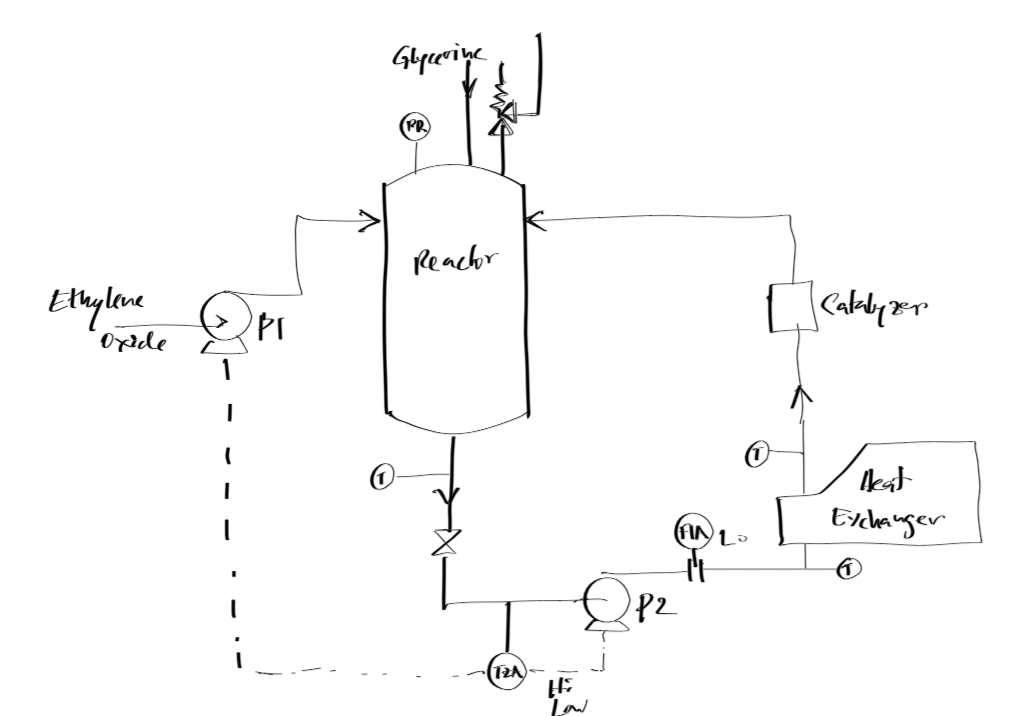 Glycerine
PR
Reactor
Ethylene
Oxide
P1
Catalyzer
T
T
Heat
Exchanger
FIA
Lo
T
P2
TZA
Hi
Low